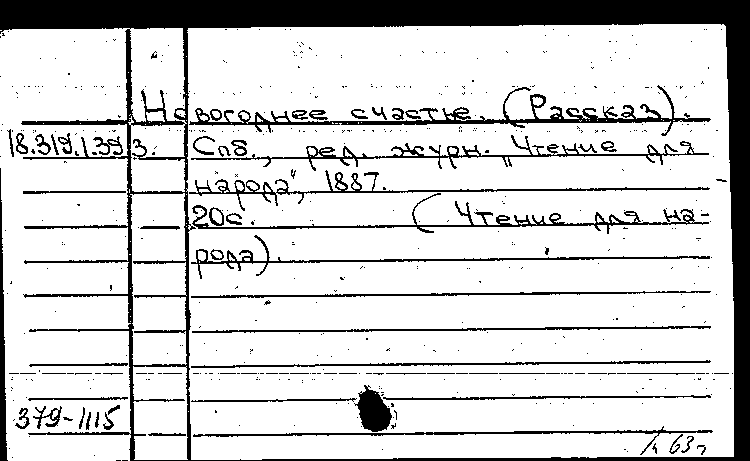 Новогоднее счастье. (Рассказ).
18.319.1.393. Спб., ред. журн. „Чтение для
народа", 1887.
20с. (Чтение для на-
рода).
379-1115